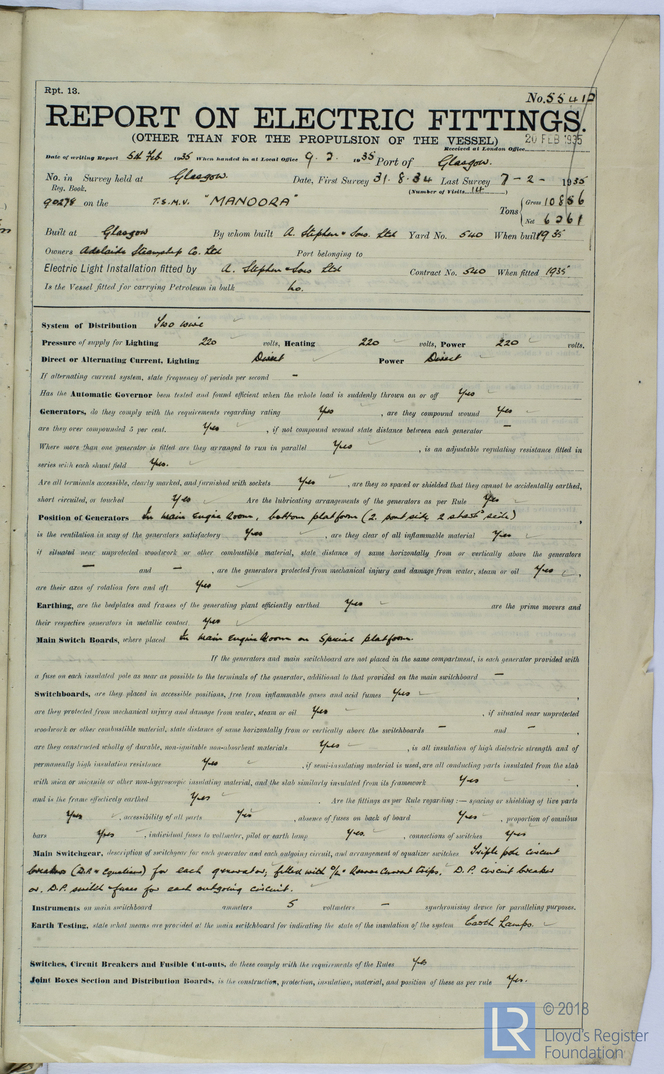 Rpt. 13.
No. 55410
REPORT ON ELECTRIC FITTINGS.
(OTHER THAN FOR THE PROPULSION OF THE VESSEL)
20 FEB 1935
Received at London Office
Date of writing Report 5th Feb 1935 When handed in at Local Office 9. 2. 1935 Port of Glasgow.
No. in Survey held at Glasgow. Date, First Survey 31. 8. 34 Last Survey 7 - 2 - 1935
Reg. Book. (Number of Visits )
90278 on the T.S.M.V. "MANOORA" Tons Gross 10856
Net 6261
Built at Glasgow By whom built A. Stephen & Sons. Ltd Yard No. 540 When built 1935
Owners Adelaide Steamship Co. Ltd Port belonging to
Electric Light Installation fitted by A. Stephen & Sons Ltd Contract No. 540 When fitted 1935
Is the Vessel fitted for carrying Petroleum in bulk No.
System of Distribution Two wire
Pressure of supply for Lighting 220 volts, Heating 220 volts, Power 220 volts,
Direct or Alternating Current, Lighting Direct Power Direct
If alternating current system, state frequency of periods per second -
Has the Automatic Governor been tested and found efficient when the whole load is suddenly thrown on or off Yes
Generators, do they comply with the requirements regarding rating Yes , are they compound wound Yes
are they over compounded 5 per cent. Yes , if not compound wound state distance between each generator -
Where more than one generator is fitted are they arranged to run in parallel Yes , is an adjustable regulating resistance fitted in
series with each shunt field Yes.
Are all terminals accessible, clearly marked, and furnished with sockets Yes , are they so spaced or shielded that they cannot be accidentally earthed,
short circuited, or touched Yes Are the lubricating arrangements of the generators as per Rule Yes
Position of Generators In main engine room, bottom platform (2 port side, 2 starb'd side)
is the ventilation in way of the generators satisfactory Yes , are they clear of all inflammable material Yes
if situated near unprotected woodwork or other combustible material, state distance of same horizontally from or vertically above the generators
- and - , are the generators protected from mechanical injury and damage from water, steam or oil Yes ,
are their axes of rotation fore and aft Yes
Earthing, are the bedplates and frames of the generating plant efficiently earthed Yes are the prime movers and
their respective generators in metallic contact Yes
Main Switch Boards, where placed In main engine room on special platform.
If the generators and main switchboard are not placed in the same compartment, is each generator provided with
a fuse on each insulated pole as near as possible to the terminals of the generator, additional to that provided on the main switchboard -
Switchboards, are they placed in accessible positions, free from inflammable gases and acid fumes Yes ,
are they protected from mechanical injury and damage from water, steam or oil Yes , if situated near unprotected
woodwork or other combustible material, state distance of same horizontally from or vertically above the switchboards - and - ,
are they constructed wholly of durable, non-ignitable non-absorbent materials Yes , is all insulation of high dielectric strength and of
permanently high insulation resistance Yes , if semi-insulating material is used, are all conducting parts insulated from the slab
with mica or micanite or other non-hygroscopic insulating material, and the slab similarly insulated from its framework Yes ,
and is the frame effectively earthed Yes . Are the fittings as per Rule regarding:— spacing or shielding of live parts
Yes , accessibility of all parts Yes , absence of fuses on back of board Yes , proportion of omnibus
bars Yes , individual fuses to voltmeter, pilot or earth lamp Yes , connections of switches Yes
Main Switchgear, description of switchgear for each generator and each outgoing circuit, and arrangement of equalizer switches Triple pole circuit
breakers for each generator, fitted with O/L & Reverse Current trips. D.P. circuit breaker
or D.P. switch & fuses for each outgoing circuit.
Instruments on main switchboard ammeters 5 voltmeters - synchronising device for paralleling purposes.
Earth Testing, state what means are provided at the main switchboard for indicating the state of the insulation of the system Earth Lamps.
Switches, Circuit Breakers and Fusible Cut-outs, do these comply with the requirements of the Rules Yes
Joint Boxes Section and Distribution Boards, is the construction, protection, insulation, material, and position of these as per rule Yes.
LR
© 2018
Lloyd's Register
Foundation